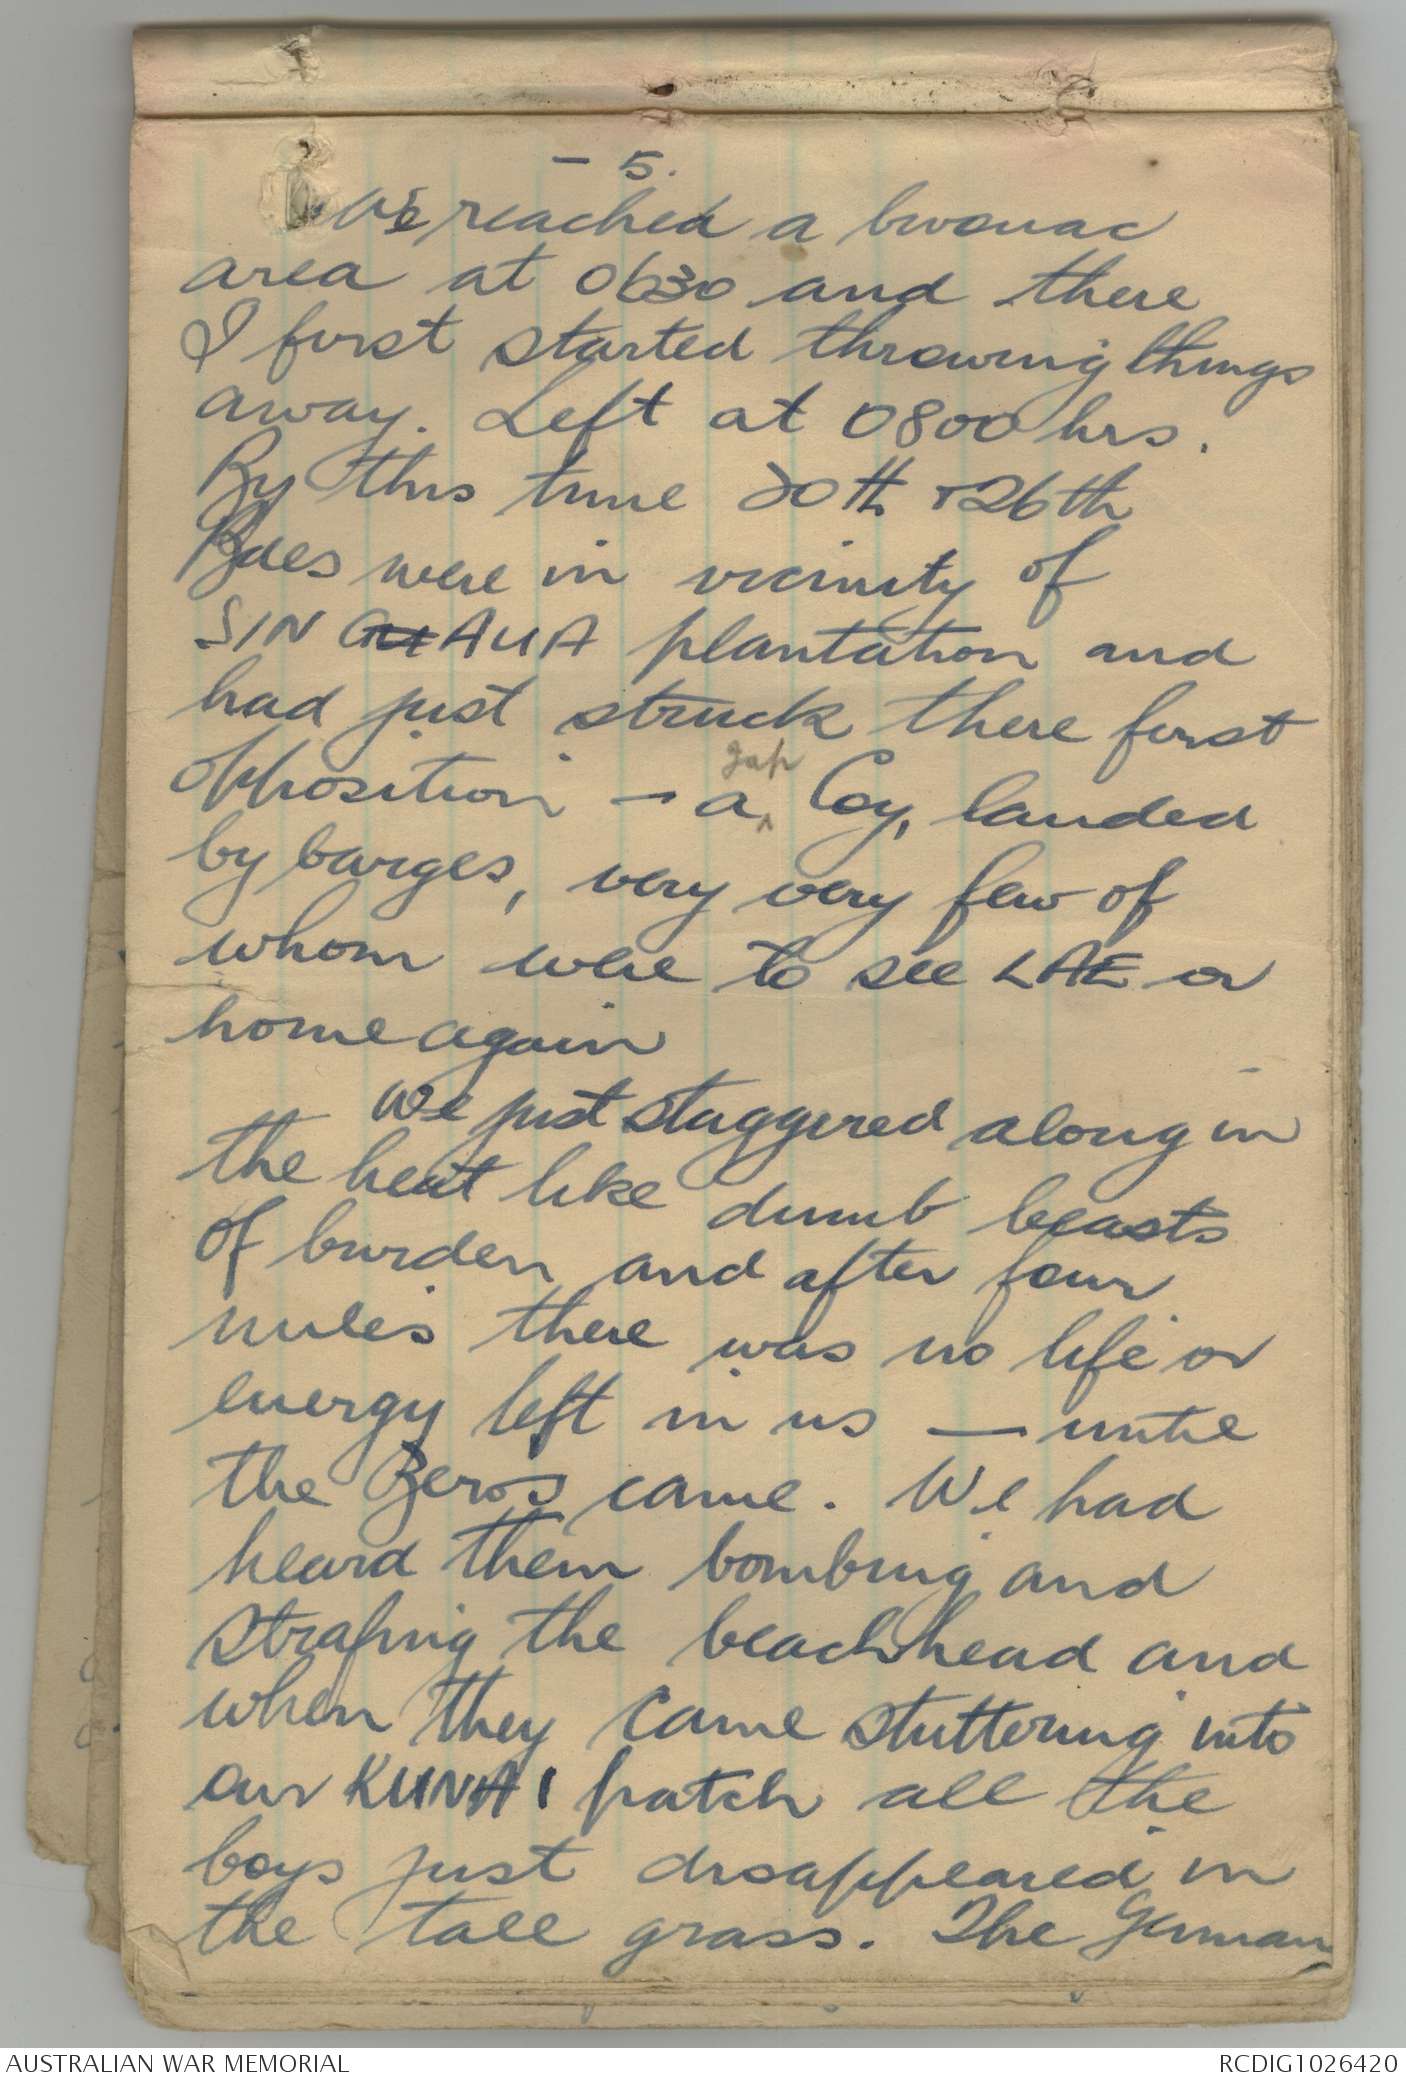 - 5.
We reached a bivouac
area at 0630 and there
I first started throwing things
away. Left at 0800 hrs.
By this time 20th + 26th
Bdes were in vicinity of
SINGAUA plantation and
had just struck there first
opposition - a Jap Coy, landed
by barges, very very few of
whom were to see LAE or
home again
We just staggered along in
the heat like dumb beasts
of burden and after four
miles there was no life or
energy left in us — until
the Zeros came. We had
heard them bombing and
strafing the beachhead and
when they came stuttering into
our KUNAI patch all the
boys just disappeared in
the tall grass. The German
AUSTRALIAN WAR MEMORIAL
RCDIG1026420